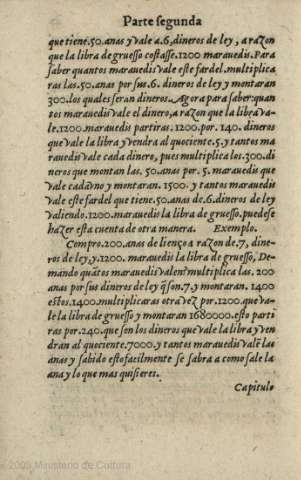 Parte segunda
que tiene.50.anas y vale a.6.dineros de ley, a razon
que la libra de gruesso costasse.1200 marauedis.Para
saber quantos marauedis vale este fardel.multiplica
ras las.50.anas por sus.6. dineros de ley y montaran
300.los quales seran dineros. Agora para saber quan
tos marauedis vale el dinero, a razon que la libra va-
le.1200.marauedis partiras.1200.por. 240. dineros
que vale la libra y vendra al quociente.5.y tantos ma
rauedis vale cada dinero, pues multiplica los.300.di
neros que montan las. 50.anas por. 5. marauedis que
vale cadavno y montaran. 1500. y tantos marauedis
vale este fardel que tiene.50.anas de.6.dineros de ley
valiendo.1200.marauedis la libra de gruesso.puedese
hazer esta cuenta de otra manera. Exemplo.
Compro.200.anas de lienço a razon de.7, dine-
ros de ley,y.1200. marauedis la libra de gruesso, De-
mando quãtos marauedis valen? multiplica las. 200
anas por sus dineros de ley q̃ son.7.y montaran. 1400
estos.1400.multiplicaras otra vez por.1200.que va-
le la libra de gruesso y montaran 1680000.esto parti
ras por.240.que son los dineros que vale la libra y ven
dran al quociente.7000.y tantos marauedis valẽ las
anas y sabido esto facilmente se sabra a como sale la
ana y lo que mas quisieres.
Capitulo
© 2005 Ministerio de Cultura